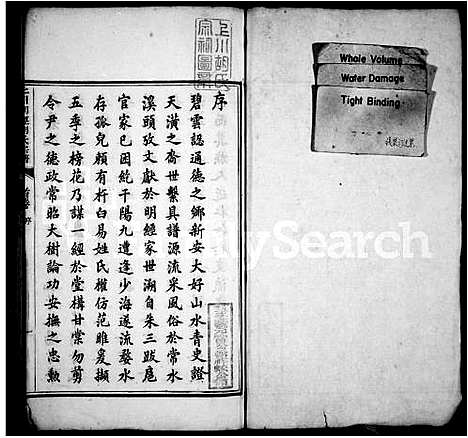 上川胡氏
宗祠圖
序
碧雲認通德之鄉新安大好山水青史證
天潢之裔世繫具譜源流采風俗於常水
溪頭攷文獻於明經家世溯自朱三跋扈
官家已困紇干陽九遭逢少海遂流發水
存孤兒賴有杵臼易姓氏權仿范雎爰擷
五季之榜花乃謀一經於堂構甘棠勿剪
令尹之德政常昭大樹論功安撫之忠勲
Whole Volume
Water Damage
Tight Binding
lySearch